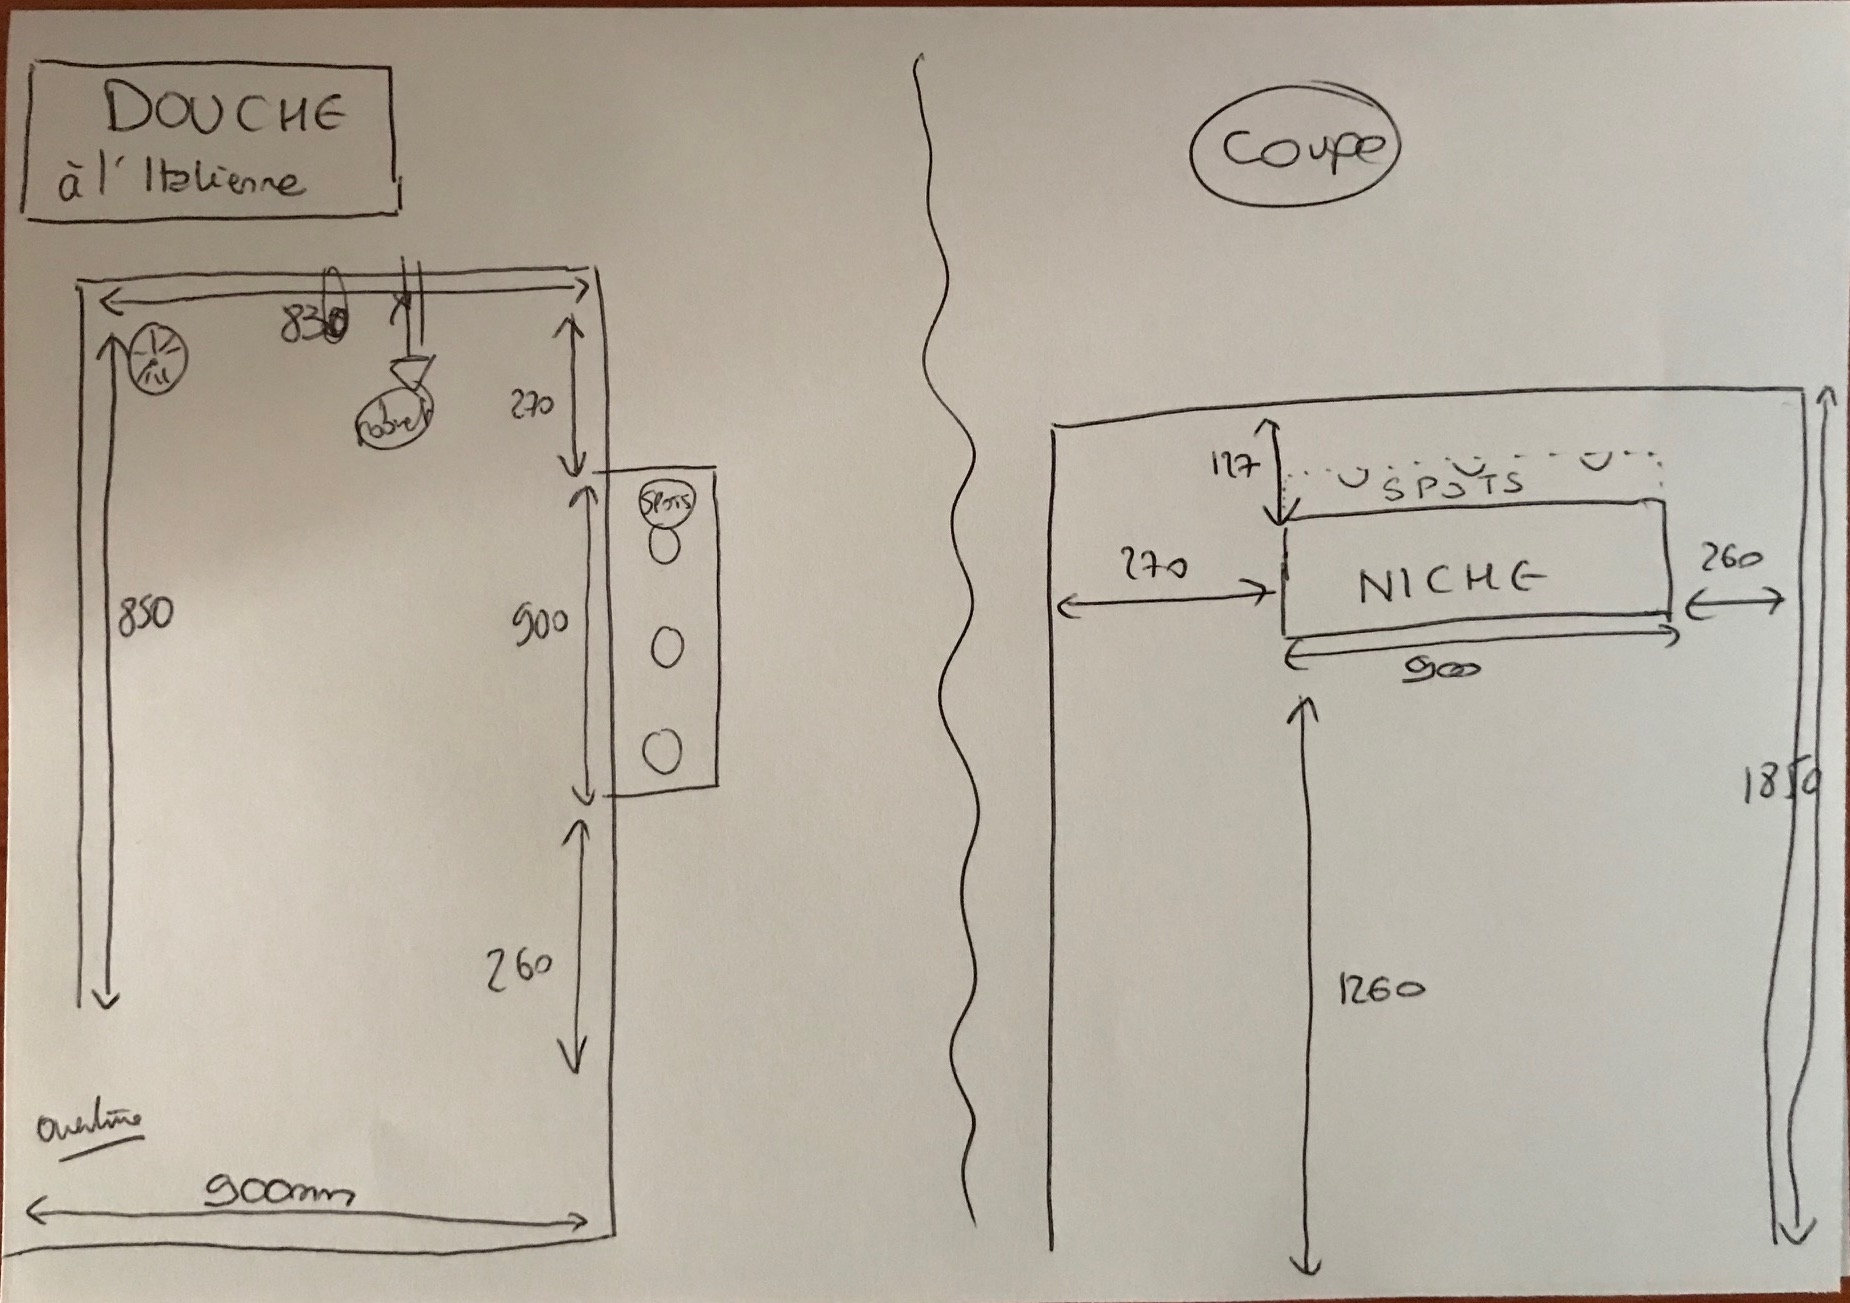 DOUCHE
à l'Italienne
830
270
spots
850
900
260
900mm
Coupe
127
SPOTS
270
NICHE
260
900
1850
1260